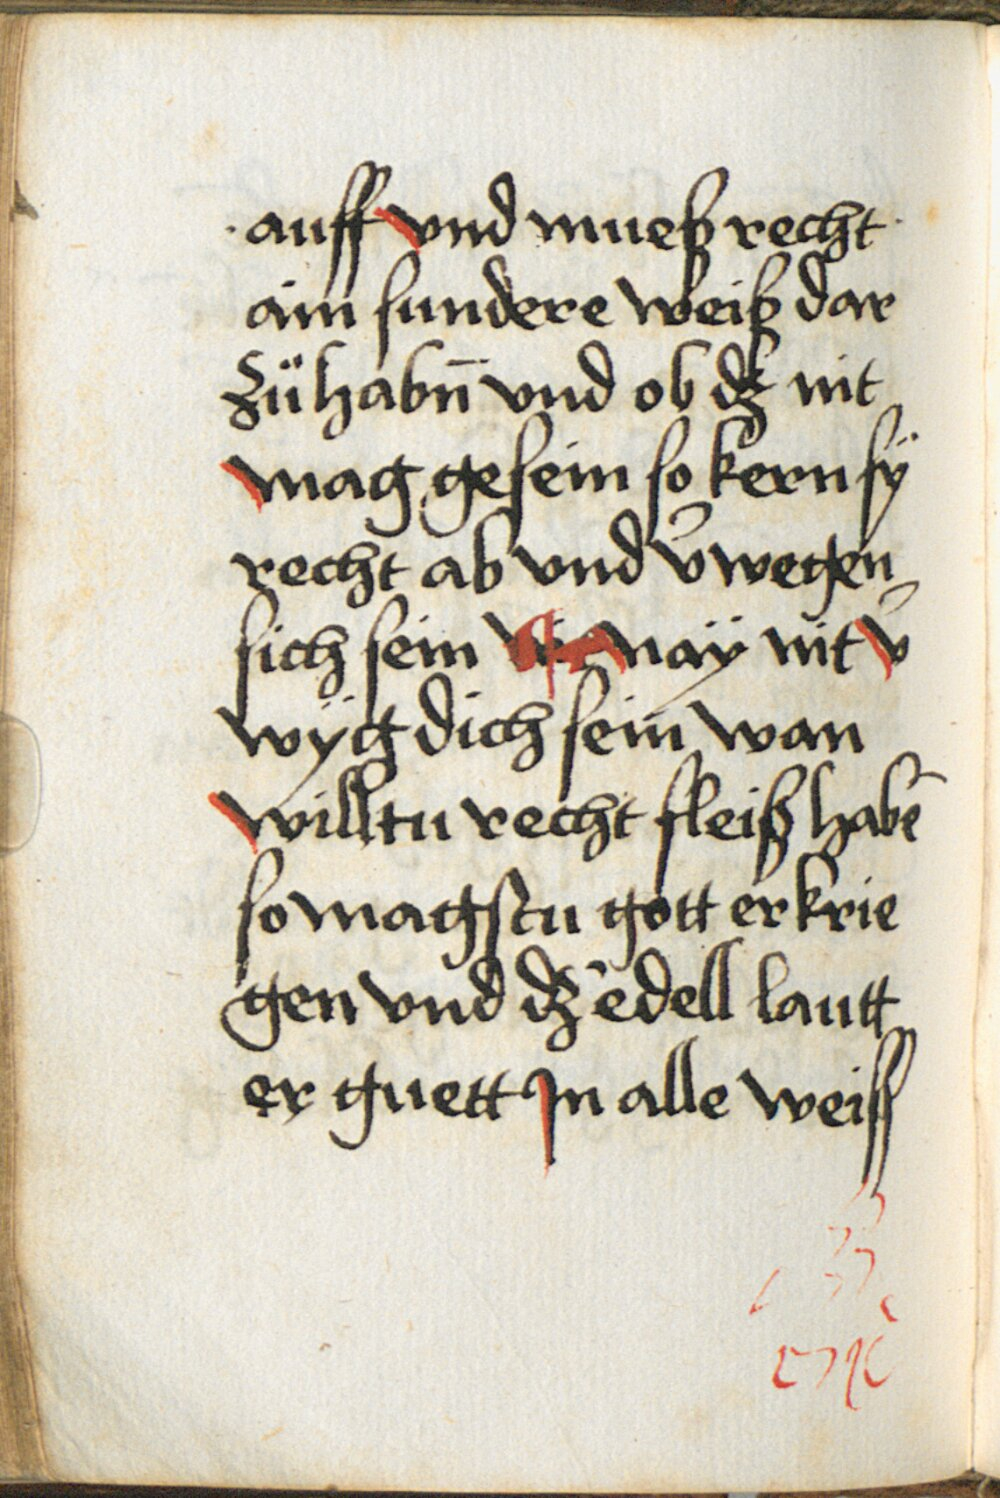 auff vnd mueß recht
ain sundere weiß dar
Zü habn̄ vnd ob dz nit
mag gesein so kern sÿ
recht ab vnd v̉wegen
sich sein naÿ nit v̉
wÿg dich sein wan
willtu recht fleiß habē
so magstu gott erkrie
gen vnd dz edell lautt
er guett Jn alle weiss